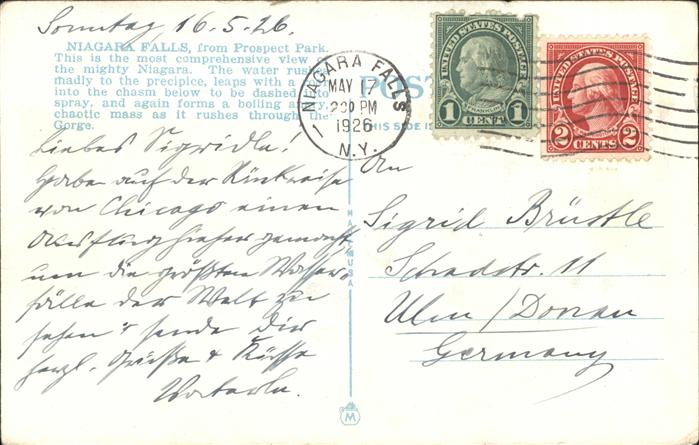 Sonntag 16.5.26.
NIAGARA FALLS, from Prospect Park.
This is the most comprehensive view of
the mighty Niagara. The water rushes
madly to the precipice, leaps with a
into the chasm below to be dashed to
spray, and again forms a boiling and
chaotic mass as it rushes through the
Gorge.
Liebes Sigridle!
Habe auf der Rückreise
von Chicago einen
Ausflug hieher gemacht
um die größten Wasser-
fälle der Welt zu
sehen & sende Dir
herzl. Grüße & Küsse
Vaterle.
NIAGARA FALLS
MAY 17
2 30 PM
1926
N.Y.
1
POST
THIS SIDE
UNITED STATES POSTAGE
FRANKLIN
1 CENT 1
UNITED STATES POSTAGE
2 CENTS 2
MADE IN USA
An
Sigrid Brüstle
Schadstr. 11
Ulm / Donau
Germany
M